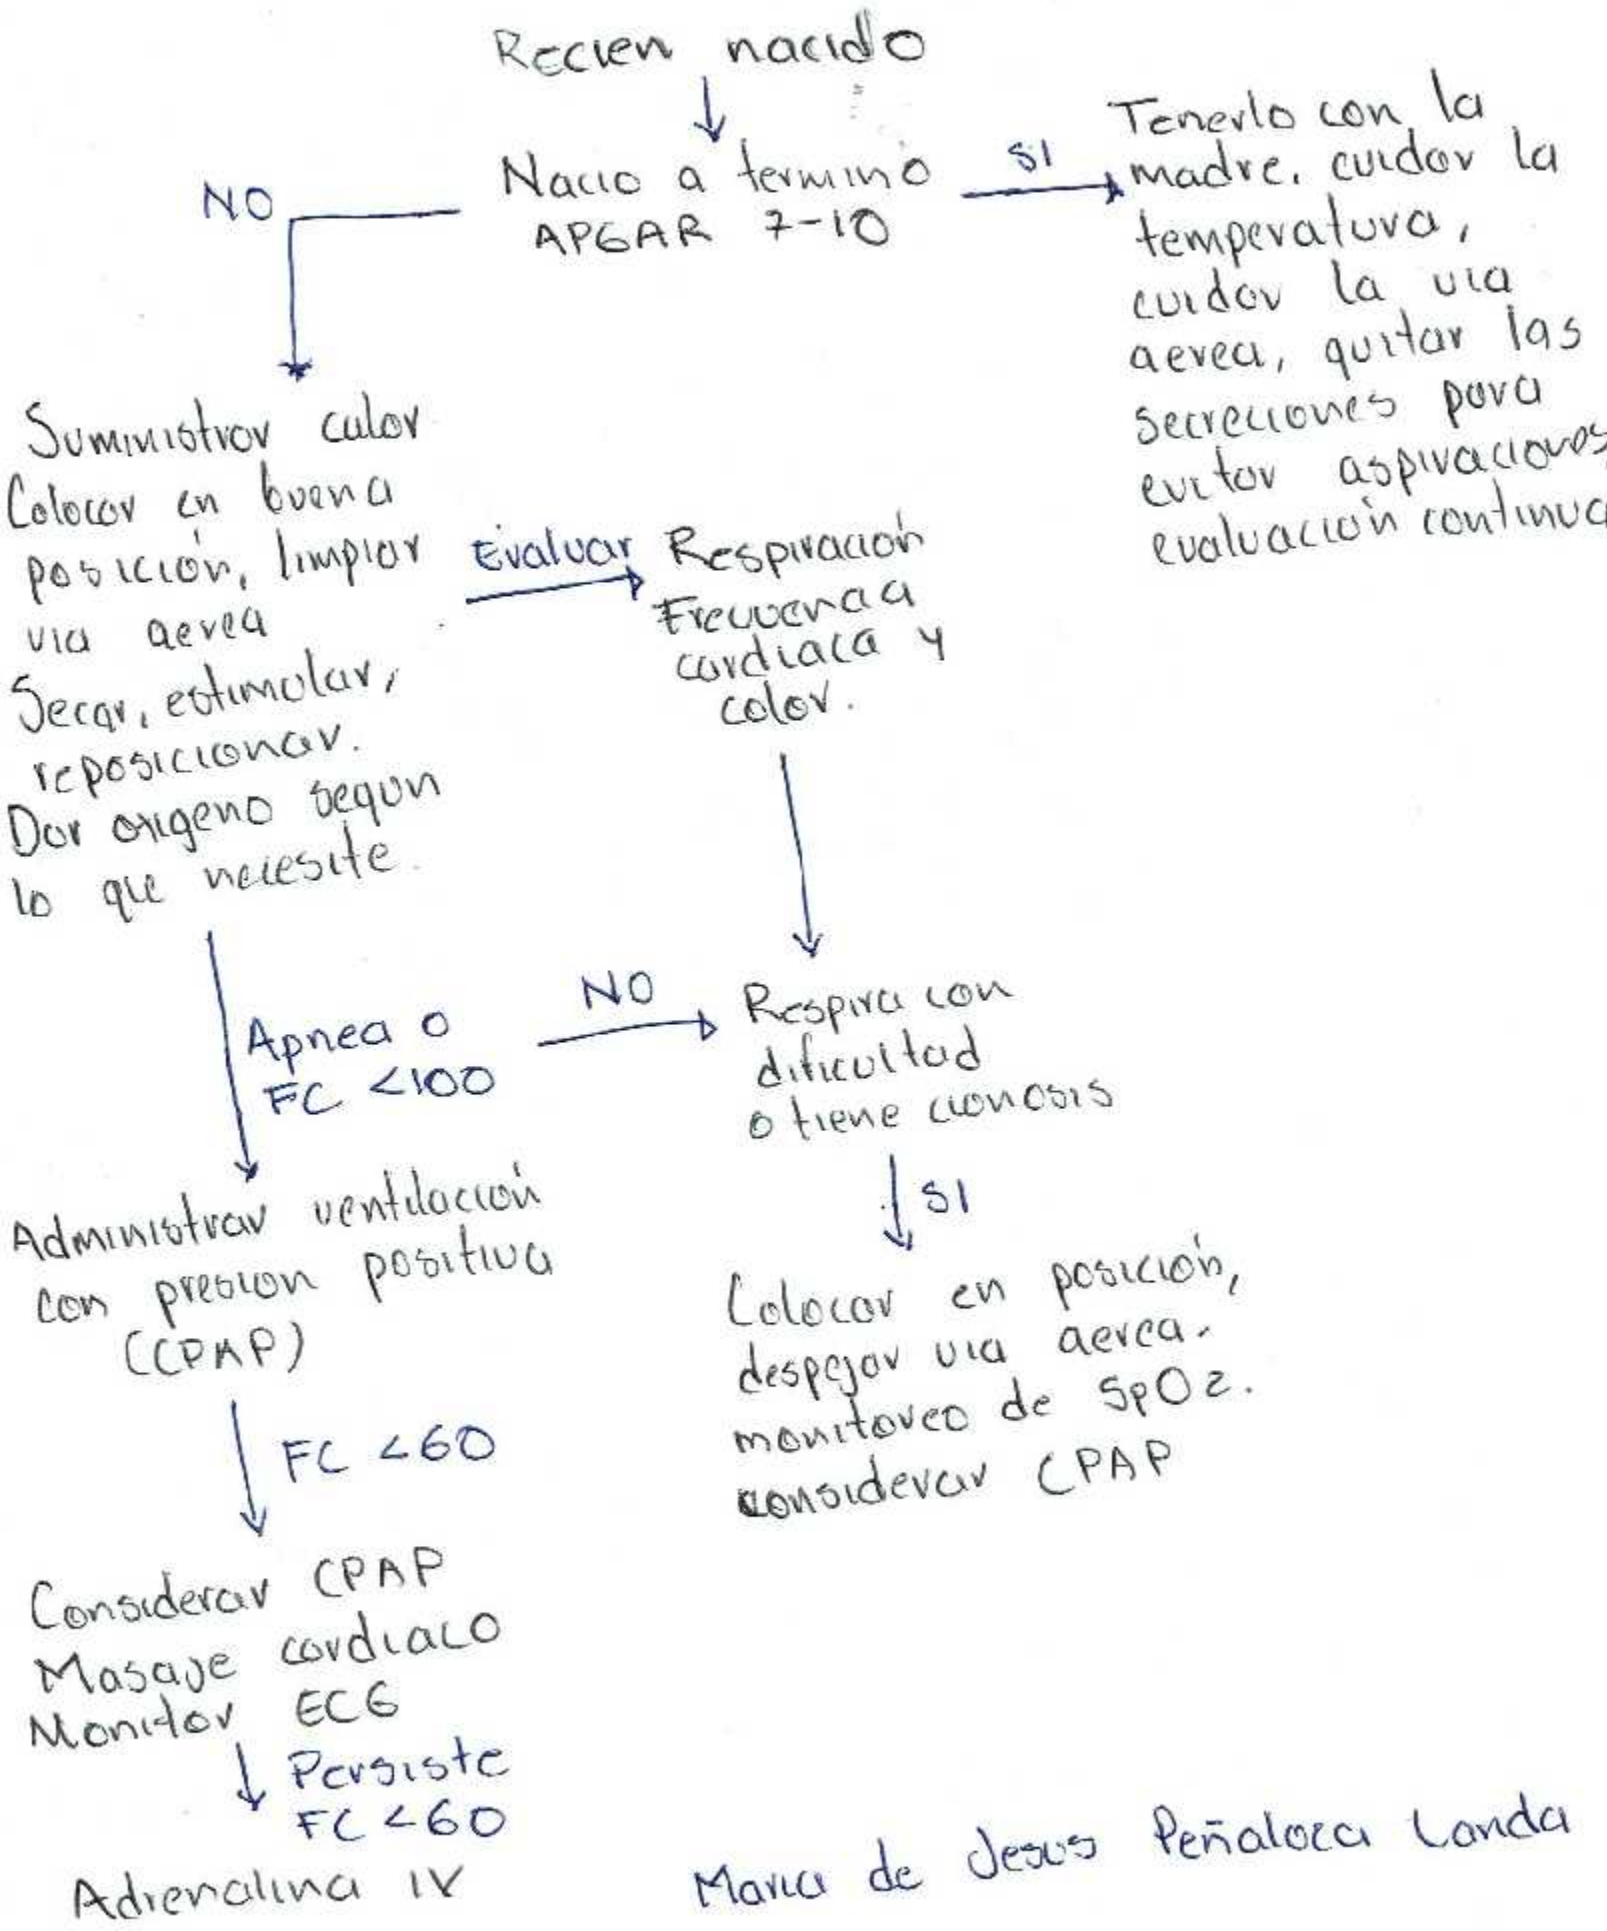 Recien nacido
Nacio a termino
APGAR 7-10
SI
NO
Tenerlo con la
madre. cuidar la
temperatura,
cuidar la via
aerea, quitar las
secreciones para
evitar aspiraciones
evaluación continua
Suministrar calor
Colocar en buena
posición, limpiar
via aerea
Secar, estimular,
reposicionar.
Dar oxigeno segun
lo que necesite.
Evaluar
Respiración
Frecuencia
cardiaca y
color.
Apnea o
FC <100
NO
Respira con
dificultad
o tiene cianosis
SI
Administrar ventilación
con presion positiva
(CPAP)
Colocar en posición,
despejar via aerea.
monitoreo de SpO2.
considerar CPAP
FC <60
Considerar CPAP
Masaje cardiaco
Monitor ECG
Persiste
FC <60
Adrenalina IV
Maria de Jesus Peñaloza Landa